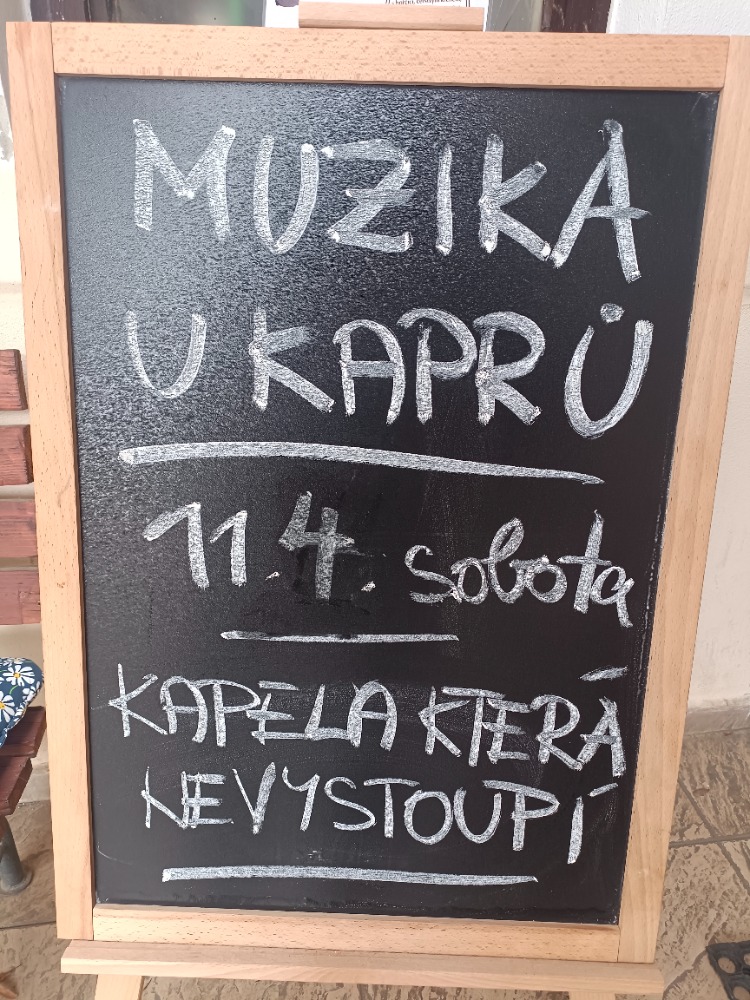 MUZIKA
U KAPRŮ
11.4. sobota
KAPELA KTERÁ
NEVYSTOUPÍ